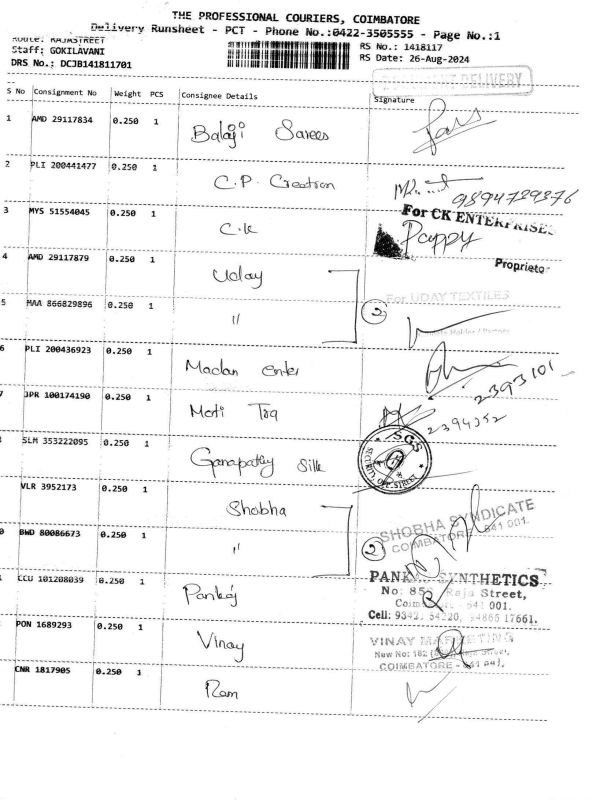 THE PROFESSIONAL COURIERS, COIMBATORE
Delivery Runsheet - PCT - Phone No.:0422-3505555 - Page No.:1
Route: RAJASTREET
Staff: GOKILAVANI
DRS No.: DCJB141811701
RS No.: 1418117
RS Date: 26-Aug-2024
DELIVERY
S No Consignment No Weight PCS Consignee Details Signature
1 AMD 29117834 0.250 1 Balaji Sarees
2 PLI 200441477 0.250 1 C.P. Creation
9894729376
3 MYS 51554045 0.250 1 C.K
For CK ENTERPRISES
Pappy
Proprietor
4 AMD 29117879 0.250 1 Uday
For UDAY TEXTILES
5 MAA 866829896 0.250 1 "
2
6 PLI 200436923 0.250 1 Madan enter
2393101
7 JPR 100174190 0.250 1 Moti Trq
2394352
SLM 353222095 0.250 1 Ganapathy Silk
SGS
VLR 3952173 0.250 1 Shobha
SHOBHA SYNDICATE
COIMBATORE 641 001.
0 BWD 80086673 0.250 1 "
2
CCU 101208039 0.250 1 Pankaj
PANKAJ SYNTHETICS
No: 85 Raja Street,
Coimbatore - 641 001.
Cell: 94220, 94866 17661.
PON 1689293 0.250 1 Vinay
VINAY MARKETING
New No: 162 Raja Street,
COIMBATORE - 641 001.
CNR 1817905 0.250 1 Ram